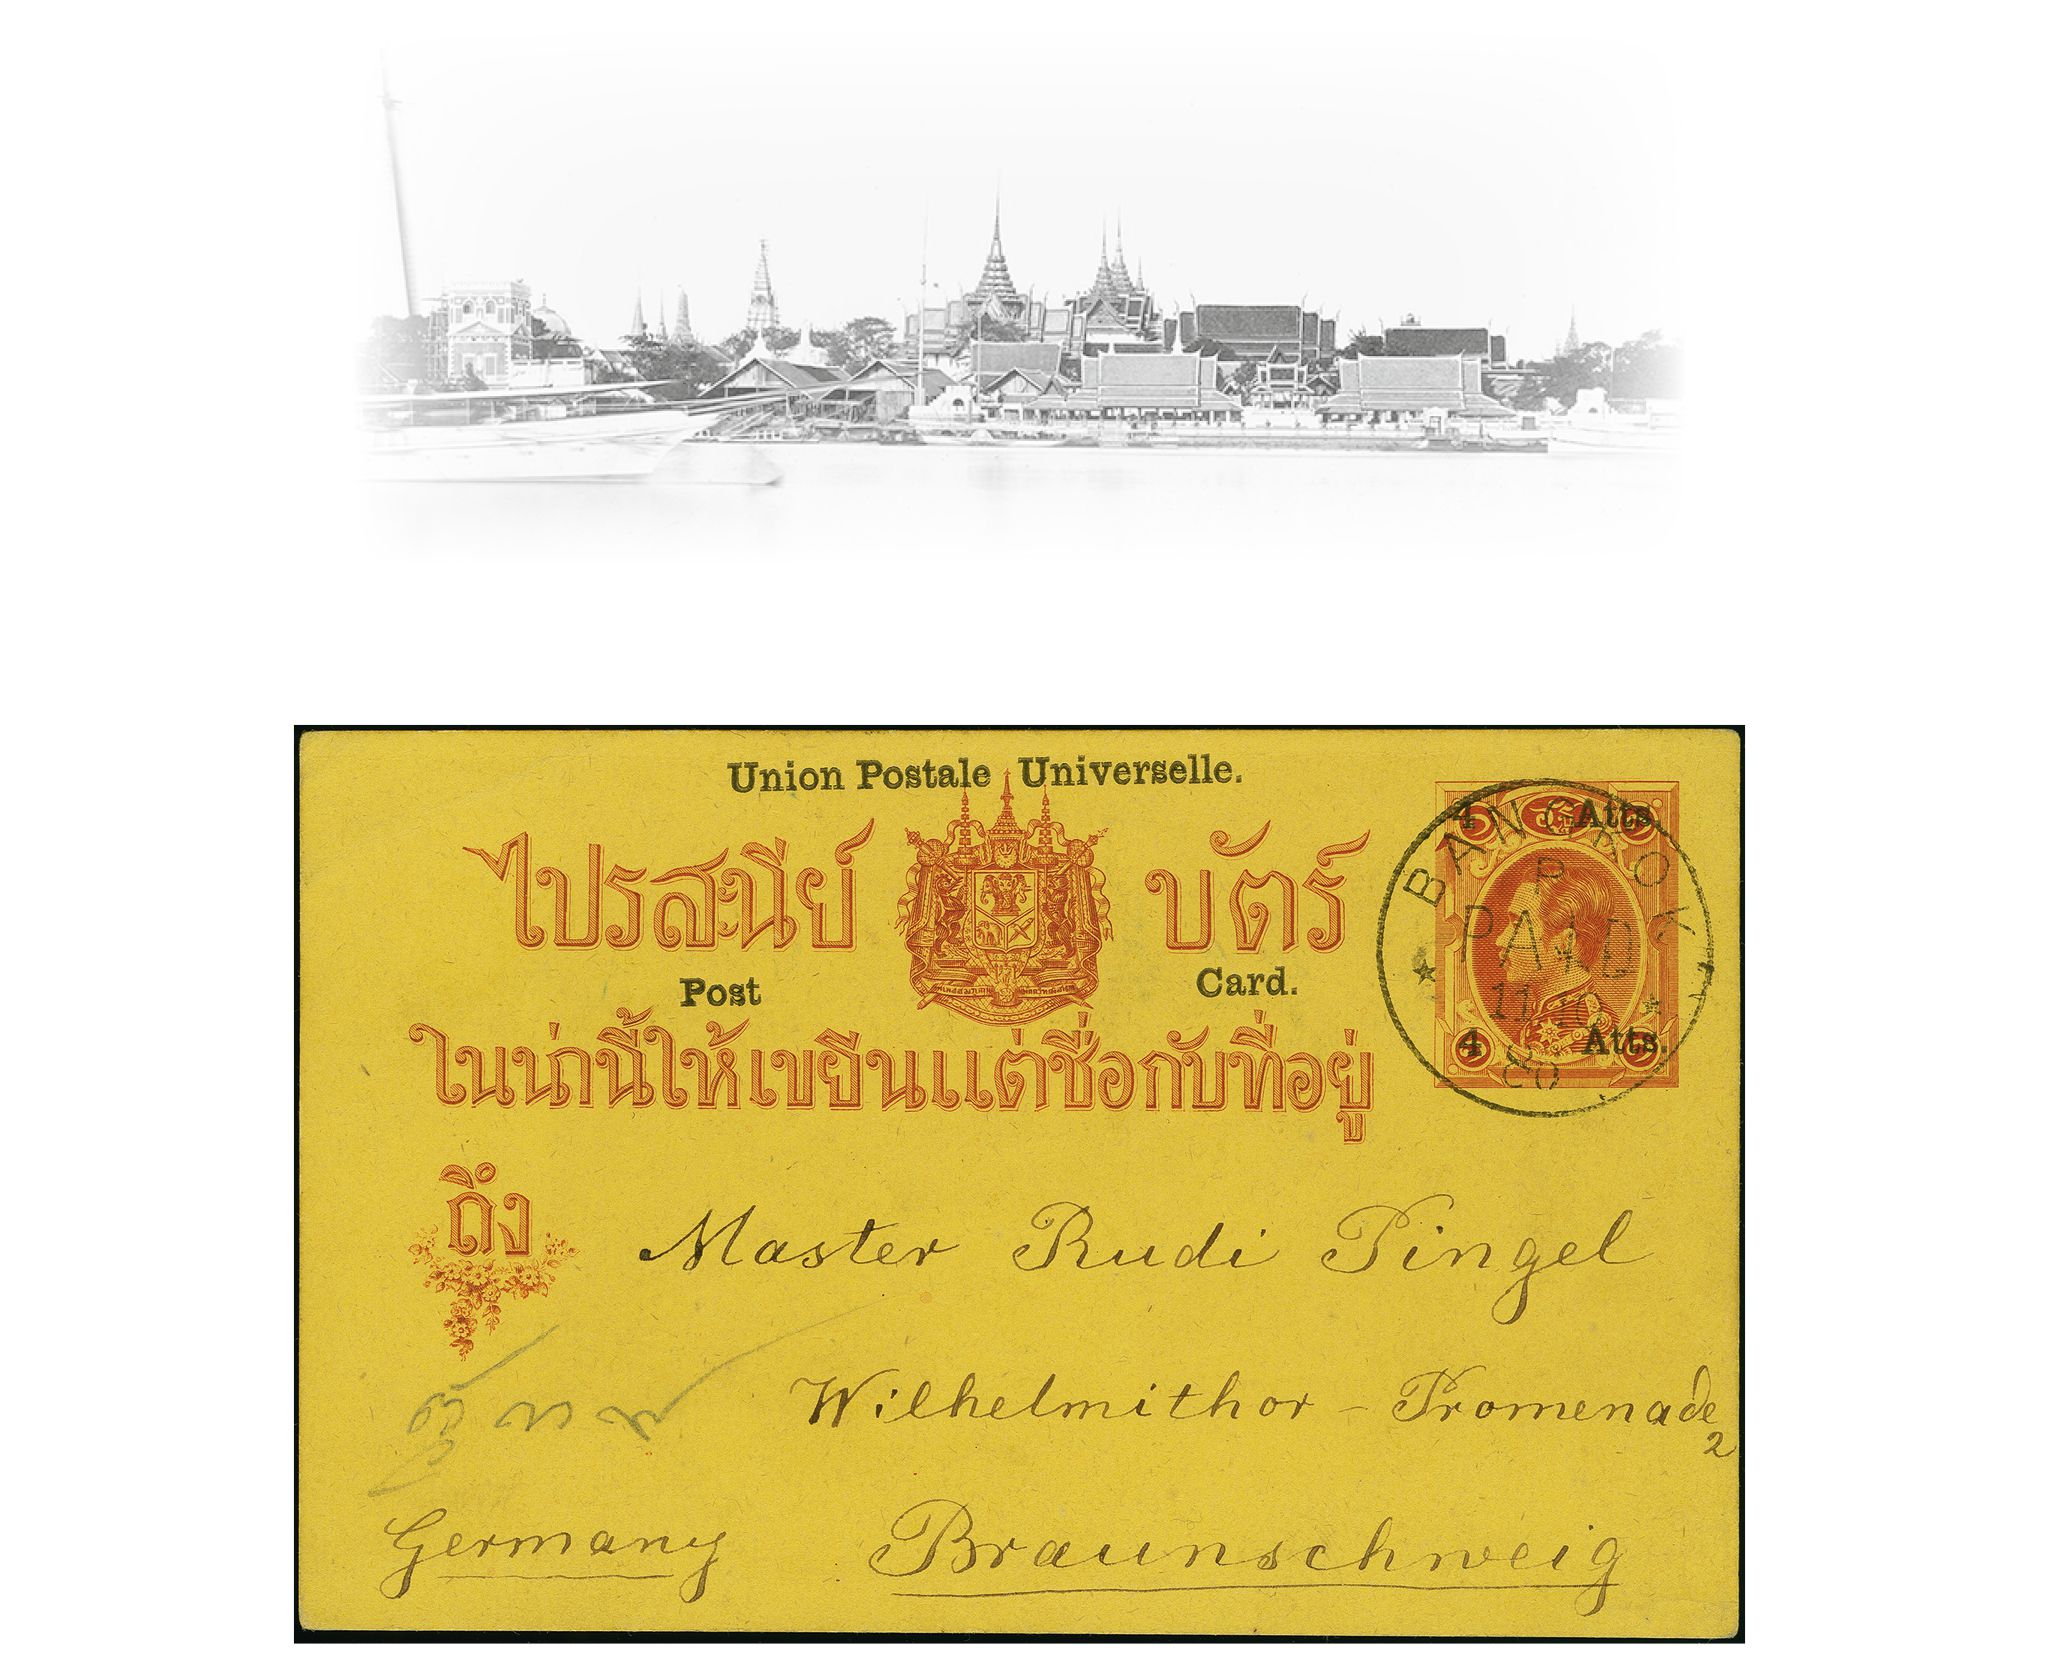 Union Postale Universelle.
ไปรสะนีย์ บัตร์
Post Card.
ในน่านี้ให้เขยีนแต่ชื่อกับที่อยู่
4 Atts.
BANGKOK
P
PAID
11 10
4 Atts.
ถึง
Master Rudi Pingel
Wilhelmithor - Promenade
2
Germany Braunschweig